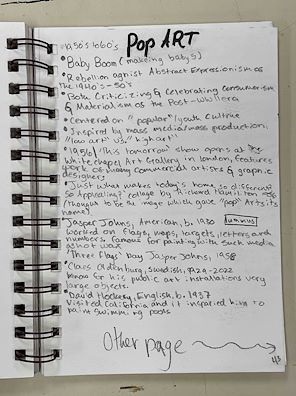 1950's to 60's Pop ART
• Baby Boom (makeing babys)
• Rebellion agnist Abstract Expressionism of
the 1940's-50's
• Both Criticizing & Celebrating consumerism
& Materialism of the Post-WWII era
• Centered on "popular"/youth culture
• Inspired by mass media/mass production;
"low art" vs. "high art"
• 1956/"This tomorrow" show opens at the
Whitechapel Art Gallery in london, features
work of many commercial artists & graphic
designers
• "Just what makes today's home so different
so Appealing?" collage by Richard Hamilton 1956
(thought to be the image which gave "pop" Arts its
name)
• Jasper Johns, American, b. 1930 Alumnus!
worked on flags, maps, targets, letters and
numbers. famous for painting with such media
as hot wax
• "Three flags" bay Jasper Johns, 1958
• Claes Oldenburg, Swedish, 1929-2022
know for his public art installations very
large objects.
• David Hockney, English, b. 1937
Visited California and it inspired him to
paint swimming pools
Other page